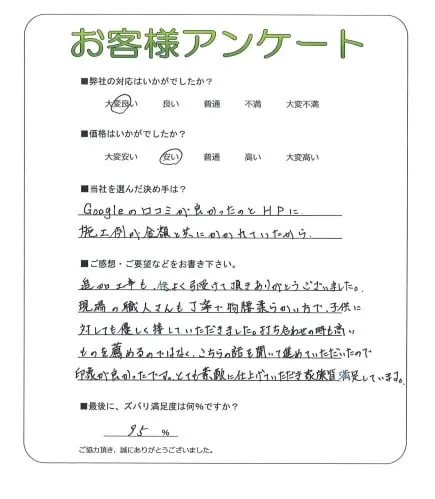 お客様アンケート
■弊社の対応はいかがでしたか？
大変良い 良い 普通 不満 大変不満
■価格はいかがでしたか？
大変安い 安い 普通 高い 大変高い
■当社を選んだ決め手は？
Googleの口コミが良かったのとHPに、
施工例が金額と共にかかれていたから。
■ご感想・ご要望などをお書き下さい。
追加工事も、快よく引受けて頂きありがとうございました。
現場の職人さんも丁寧で物腰柔らかい方で、子供に
対しても優しく接していただきました。打ち合わせの時も高い
ものを薦めるのではなく、こちらの話を聞いて進めていただいたので
印象が良かったです。とても素敵に仕上げていただき 満足しています。
■最後に、ズバリ満足度は何％ですか？
95 %
ご協力頂き、誠にありがとうございました。